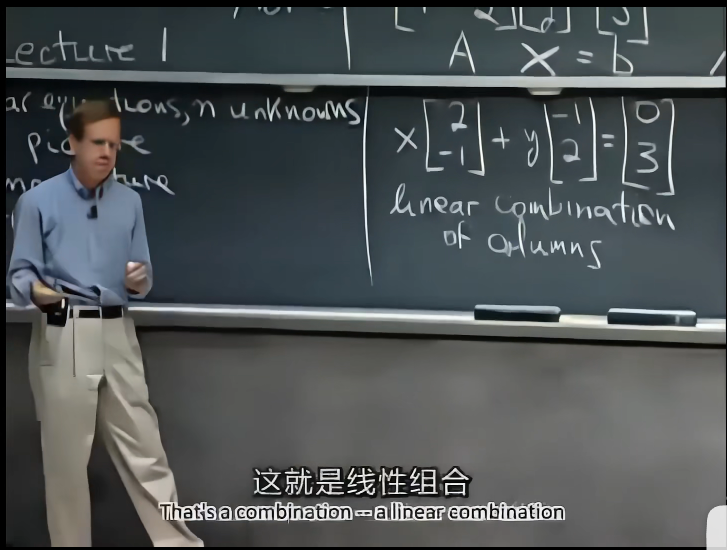 Lecture 1
A x = b
equations, n unknowns
picture
x [2 -1] + y [-1 2] = [0 3]
linear combination
of columns
这就是线性组合
That's a combination -- a linear combination